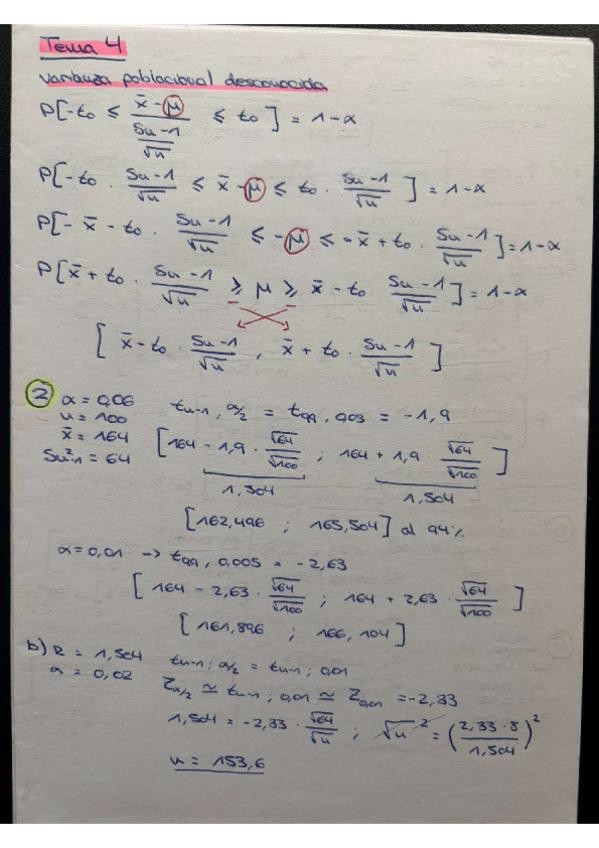 Tema 4
varianza poblacional desconocida
P[-t₀ ≤ (x̄ - μ) / (Sn-1/√n) ≤ t₀] = 1-α
P[-t₀ · Sn-1/√n ≤ x̄ - μ ≤ t₀ · Sn-1/√n] = 1-α
P[-x̄ - t₀ · Sn-1/√n ≤ -μ ≤ -x̄ + t₀ · Sn-1/√n] = 1-α
P[x̄ + t₀ · Sn-1/√n ≥ μ ≥ x̄ - t₀ Sn-1/√n] = 1-α
[x̄ - t₀ · Sn-1/√n , x̄ + t₀ · Sn-1/√n]
2 α = 0,06 tn-1, α/2 = t99, 0,03 = -1,9
n = 100
x̄ = 164 [164 - 1,9 · √64/√100 ; 164 + 1,9 · √64/√100]
S²n-1 = 64
1,504 1,504
[162,496 ; 165,504] al 94%
α = 0,01 -> t99, 0,005 = -2,63
[164 - 2,63 · √64/√100 ; 164 + 2,63 · √64/√100]
[161,896 ; 166,104]
b) R = 1,504 tn-1; α/2 = tn-1; 0,01
α = 0,02 Zα/2 ≃ tn-1; 0,01 ≃ Z0,01 = -2,33
1,504 = -2,33 · √64/√n ; √n² = (2,33·8/1,504)²
n = 153,6